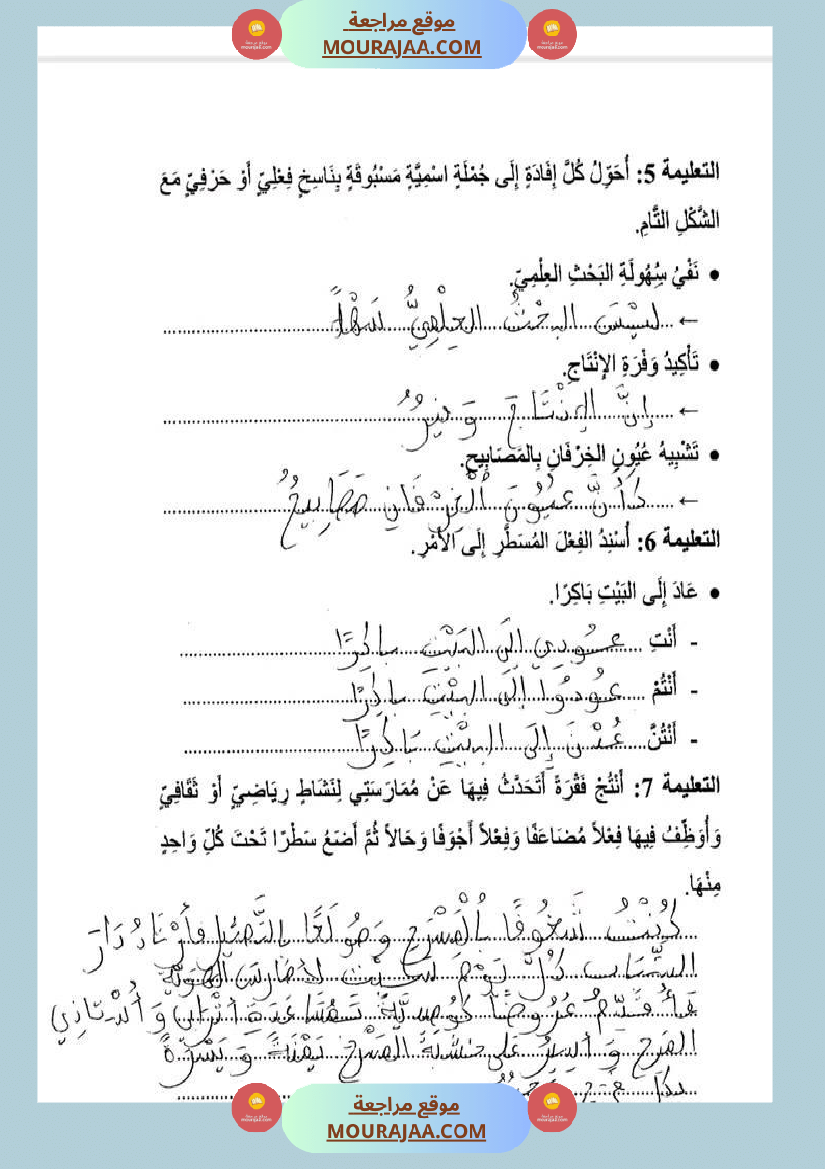 موقع مراجعة
MOURAJAA.COM
التعليمة 5: أُحَوِّلُ كُلَّ إِفَادَةٍ إِلَى جُمْلَةٍ اسْمِيَّةٍ مَسْبُوقَةٍ بِنَاسِخٍ فِعْلِيٍّ أَوْ حَرْفِيٍّ مَعَ
الشَّكْلِ التَّامِ.
● نَفْيُ سُهُولَةِ البَحْثِ العِلْمِيّ.
← لَيْسَ البحْثُ العِلْمِيُّ سَهْلاً
● تَأْكِيدُ وَفْرَةِ الإِنْتَاجِ.
← إِنَّ الإِنْتَاجَ وَفِيرٌ
● تَشْبِيهُ عُيُونِ الخِرْفَانِ بِالمَصَابِيحِ.
← كَأَنَّ عُيُونَ الْخِرْفَانِ مَصَابِيحُ
التعليمة 6: أُسْنِدُ الفِعْلَ المُسَطَّرِ إِلَى الأَمْرِ.
● عَادَ إِلَى البَيْتِ بَاكِرًا.
- أَنْتِ عُودِي إِلَى البَيْتِ باكِرًا
- أَنْتُمْ عُودُوا إِلَى البَيْتِ باكِرًا
- أَنْتُنَّ عُدْنَ إِلَى البَيْتِ بَاكِرًا
التعليمة 7: أُنْتُجْ فَقْرَةً أَتَحَدَّثُ فِيهَا عَنْ مُمَارَسَتِي لِنَشَاطٍ رِيَاضِيٍّ أَوْ ثَقَافِيٍّ
وَأُوَظِّفُ فِيهَا فِعْلاً مُضَاعَفًا وَفِعْلاً أَجْوَفًا وَحَالاً ثُمَّ أَضَعُ سَطْرًا تَحْتَ كُلِّ وَاحِدٍ
مِنْهَا.
كُنْتُ شَغُوفًا بِالْمَسْرَحِ وَمُولَعًا بِالتَّمْثِيلِ فَأَرْتَادُ دَارَ
الشَّبَابِ كُلَّ يَوْمِ سَبْت لأُمَارِسَ الهِوَايَةَ
فَأُقَدِّمُ عُرُوضًا كُومِيدِيَّةً أَتْرَابِي وَ
المَرَحِ وَأَسِيرُ عَلَى خَشَبَةِ المَسْرَحِ يَمْنَةً وَيَسْرَةً
موقع مراجعة
MOURAJAA.COM